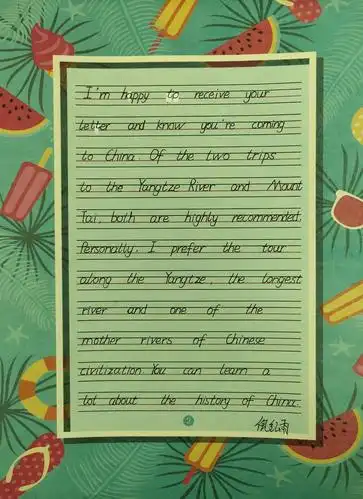 I'm happy to receive your
letter and know you're coming
to China. Of the two trips
to the Yangtze River and Mount
Tai, both are highly recommended.
Personally, I prefer the tour
along the Yangtze, the longest
river and one of the
mother rivers of Chinese
civilization. You can learn a
lot about the history of China.